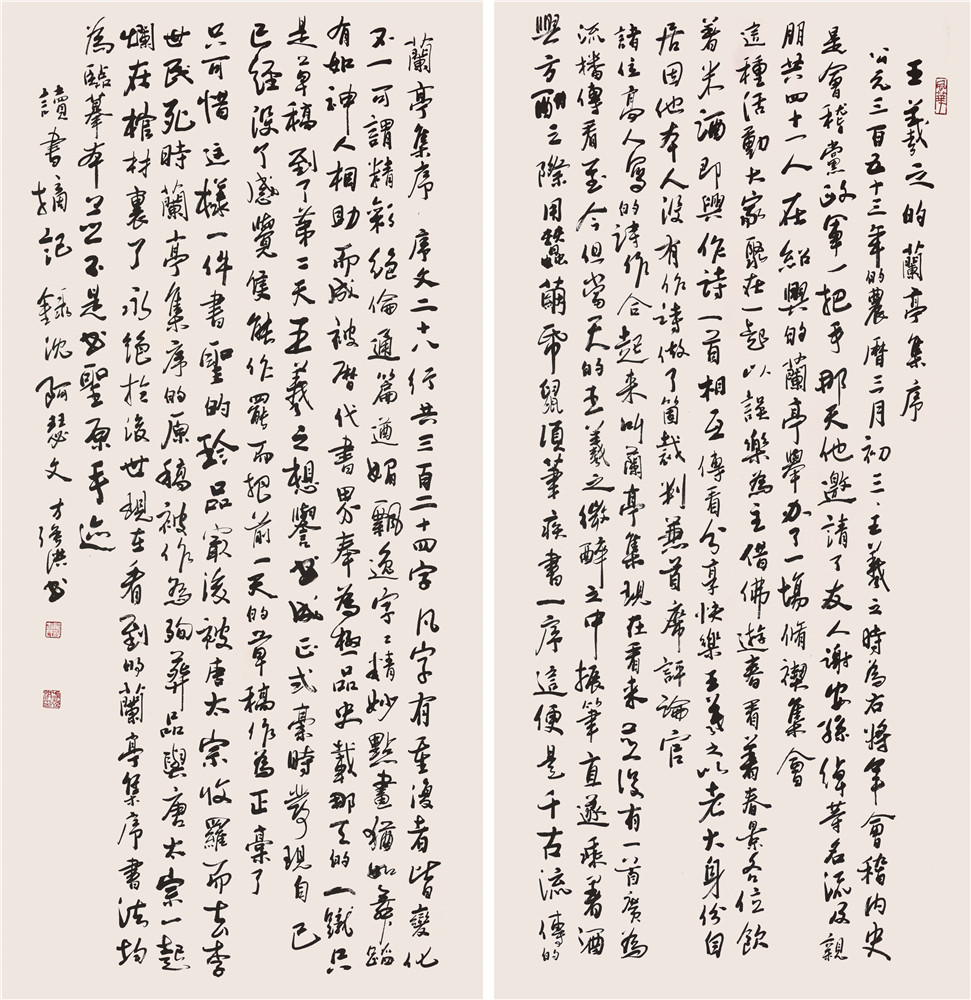 王羲之的蘭亭集序
公元三百五十三年的農曆三月初三王羲之時為右將軍會稽內史
是會稽黨政軍一把手那天他邀請了友人謝安孫倬等名流及親
朋共四十一人在紹興的蘭亭舉办了一場脩禊集會
這種活動大家聚在一起以誤樂為主借佛遊春看著春景各位飲
着米酒即興作詩一首相互傳看分享快樂王羲之以老大身份自
居因他本人沒有作詩做了箇裁判兼首席評論官
諸位高人寫的詩作合起来叫蘭亭集現在看来並沒有一首廣為
流播傳看至今但當天的王羲之微醉之中振筆直遂乘著酒
興方酣之際用蠶繭帋鼠須筆疾書一序這便是千古流傳的
蘭亭集序序文二十八行共三百二十四字凡字有重復者皆變化
不一可謂精彩絕倫通篇遒媚飄逸字字精妙點畫猶如舞蹈
有如神人相助而成被曆代書界奉為極品史載那天的一蹴只
是草稿到了第二天王羲之想謄書成正式稾時發現自己
已經沒了感覺隻能作罷而把前一天的草稿作為正稾了
只可惜這樣一件書聖的珍品最後被唐太宗收羅而去李
世民死時蘭亭集序的原稿被作為殉葬品與唐太宗一起
爛在棺材裏了永絕於後世現在看到的蘭亭集序書法均
為臨摹本並不是书聖原手迹
讀書摘記錄沈阿瑟文方孫洪书